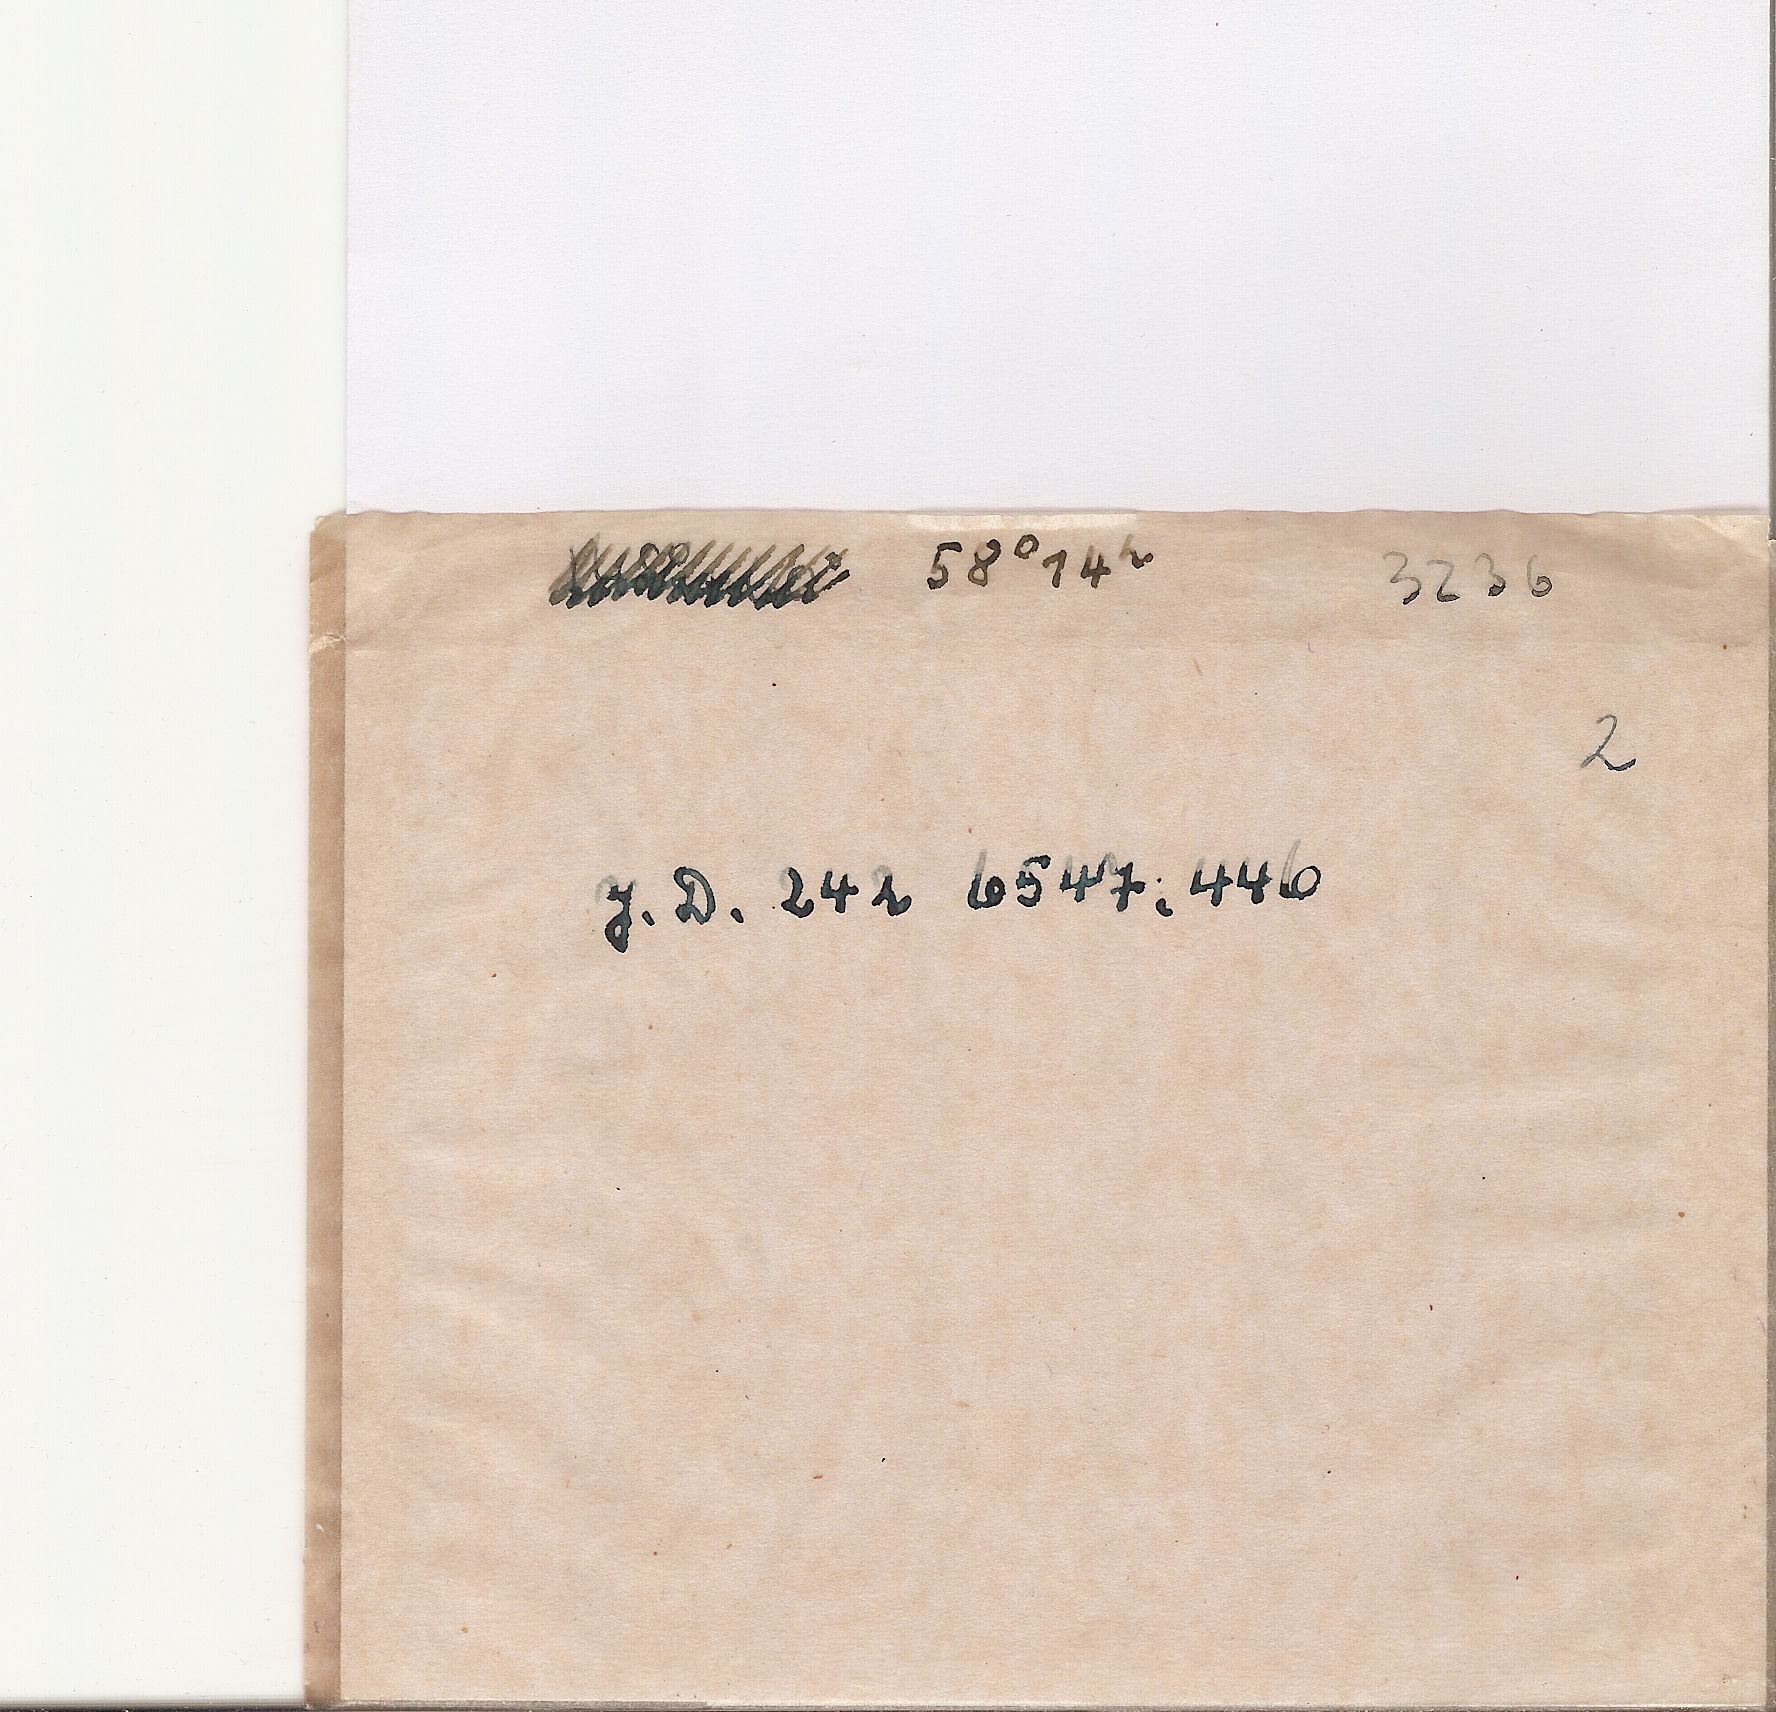 58° 14ʰ 3236
2
J. D. 242 6547.446